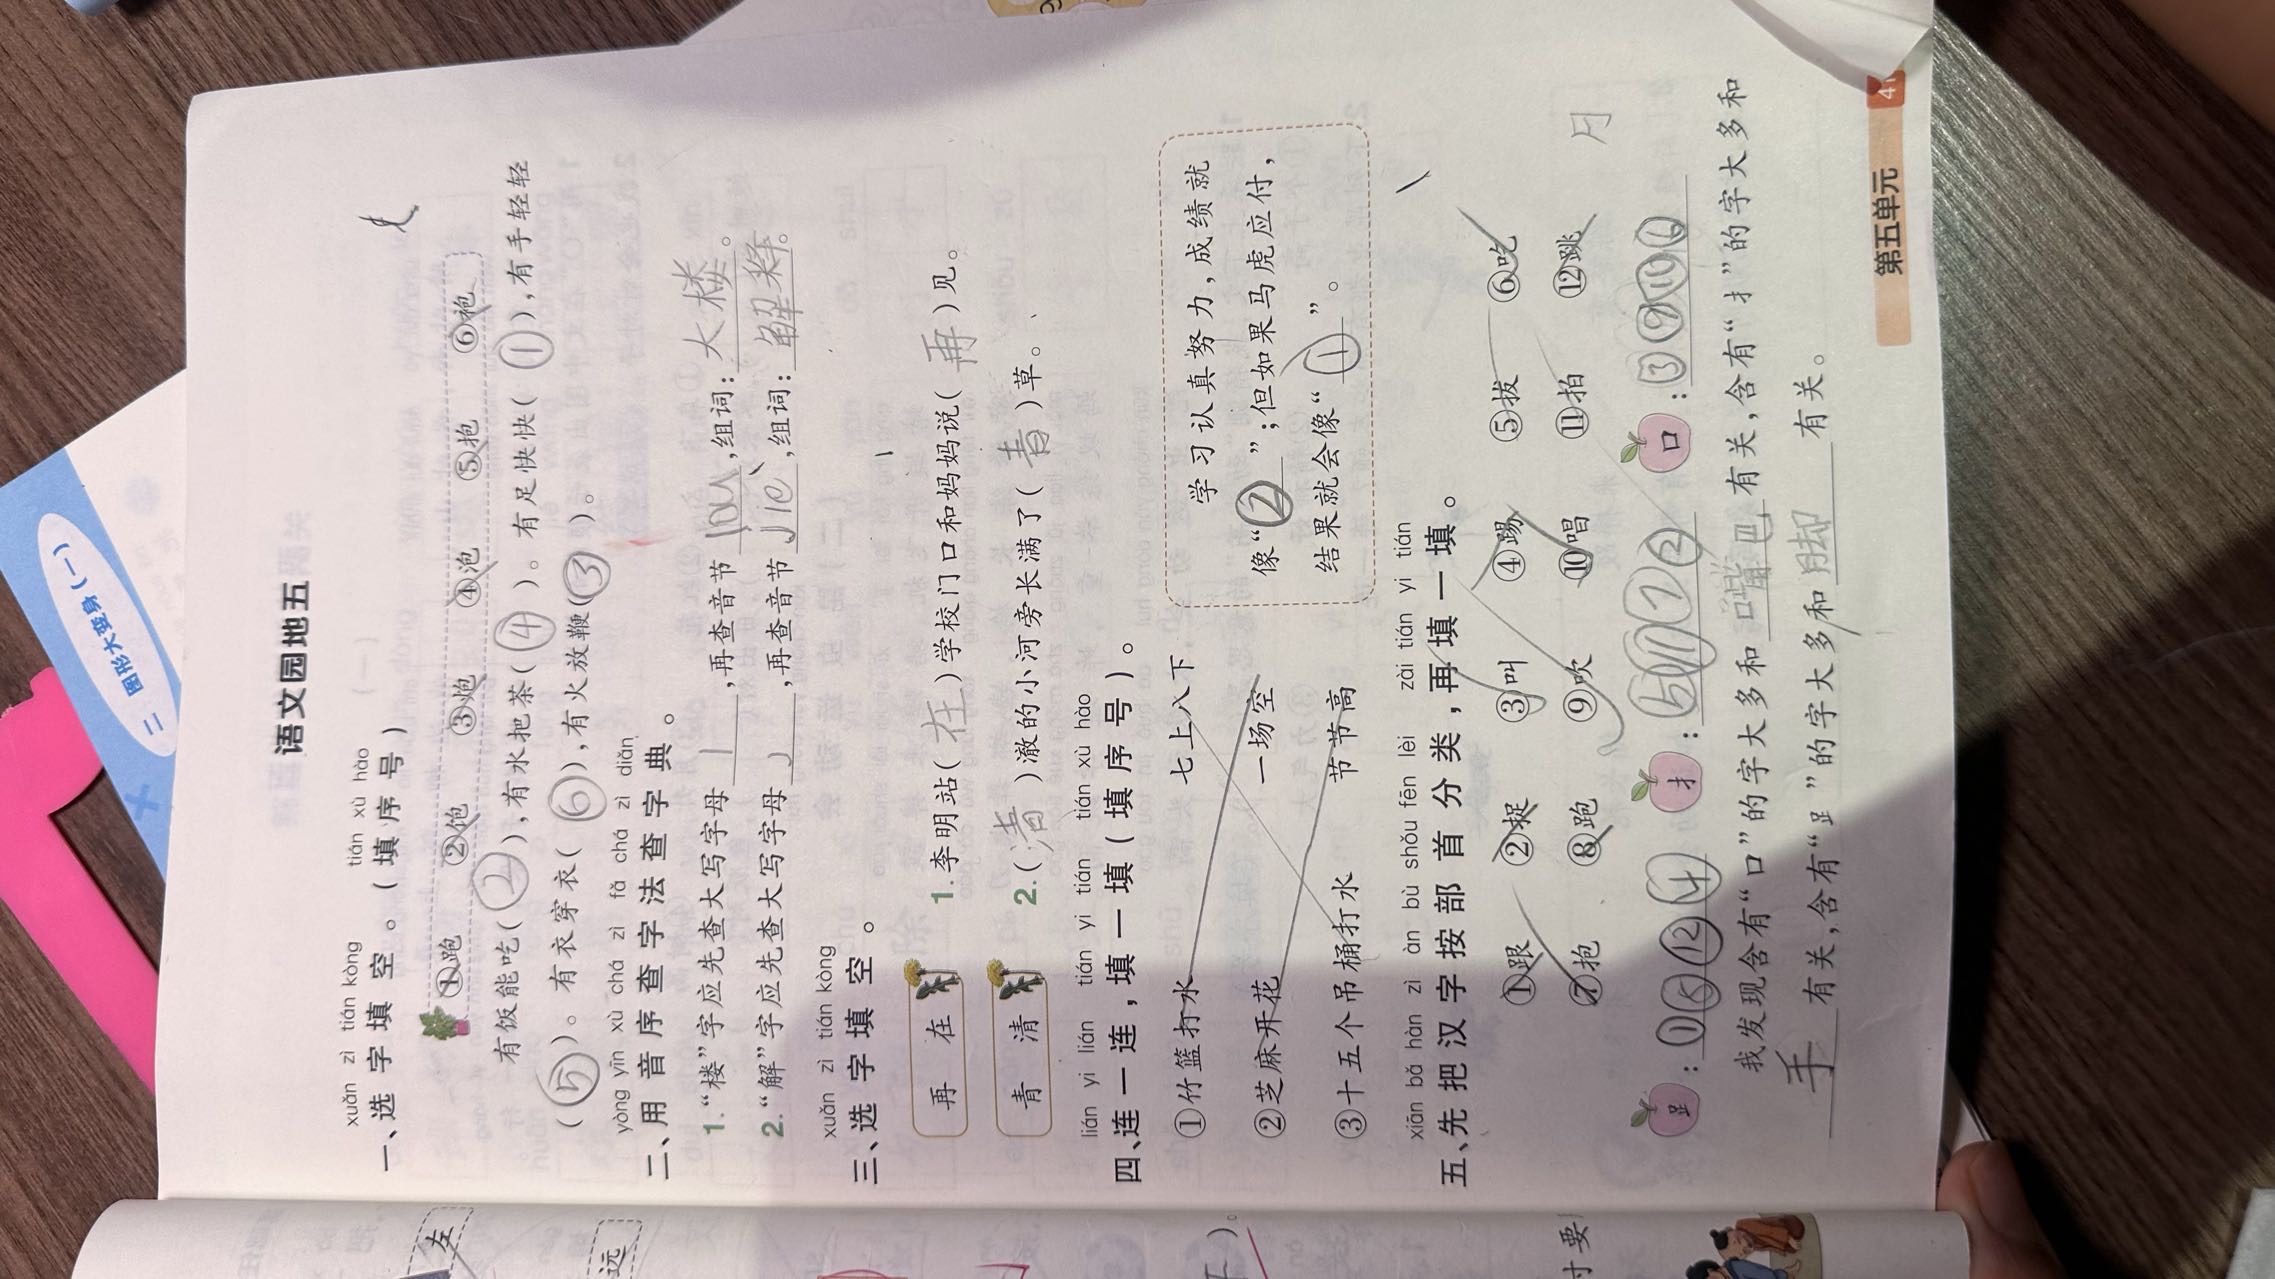 二 图形大变身(一)
语文园地五
xuǎn zì tián kòng tián xù hào
一、选字填空。(填序号)
①跑 ②饱 ③炮 ④泡 ⑤抱 ⑥袍
有饭能吃(②),有水把茶(④)。有足快快(①),有手轻轻
(⑤)。有衣穿衣(⑥),有火放鞭(③)。
yòng yīn xù chá zì fǎ chá zì diǎn
二、用音序查字法查字典。
1.“楼”字应先查大写字母 l ,再查音节 lóu ,组词: 大楼 。
2.“解”字应先查大写字母 J ,再查音节 Jiě ,组词: 解释 。
xuǎn zì tián kòng
三、选字填空。
再 在
1.李明站(在)学校门口和妈妈说(再)见。
青 清
2.(清)澈的小河旁长满了(青)草。
lián yi lián tián yi tián tián xù hào
四、连一连,填一填(填序号)。
①竹篮打水 七上八下
②芝麻开花 一场空
③十五个吊桶打水 节节高
学习认真努力,成绩就
像“②”;但如果马虎应付,
结果就会像“①”。
xiān bǎ hàn zì àn bù shǒu fēn lèi zài tián yi tián
五、先把汉字按部首分类,再填一填。
①跟 ②捉 ③叫 ④踢 ⑤拔 ⑥吃
⑦抱 ⑧跑 ⑨吹 ⑩唱 ⑪拍 ⑫跳
月
⻊:①⑧⑫④ 扌:⑤⑪⑦② 口:③⑨⑩⑥
我发现含有“口”的字大多和 嘴巴 有关,含有“扌”的字大多和
手 有关,含有“⻊”的字大多和 脚 有关。
第五单元 41
左
远